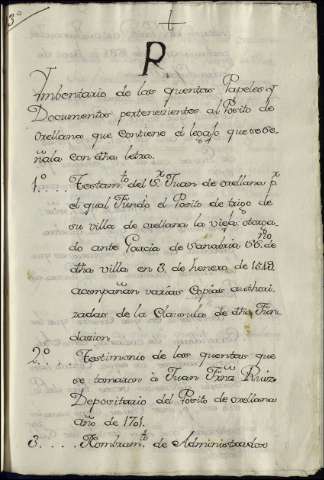 3º
R
Ymbentario de las quentas Papeles y
Documentos pertenecientes al Posito de
orellana que contiene el legajo que se se-
ñala con dha letra.
1.º .. Testam.to del S.r Juan de orellana p.r
el qual Fundo el Posito de trigo de
su villa de orellana la vieja otorga-
do ante Garcia de Sanabria de
dha villa en 3. de henero de
acompañan varias Copias authori-
zadas de la Clausula de dha Fun
dacion.
2.º .... Testimonio de las quentas que
se tomaron à Juan Frnz Ruiz
Depositario del Posito de orellana
año de 1701.
3. .... Nombram.to de Administrador